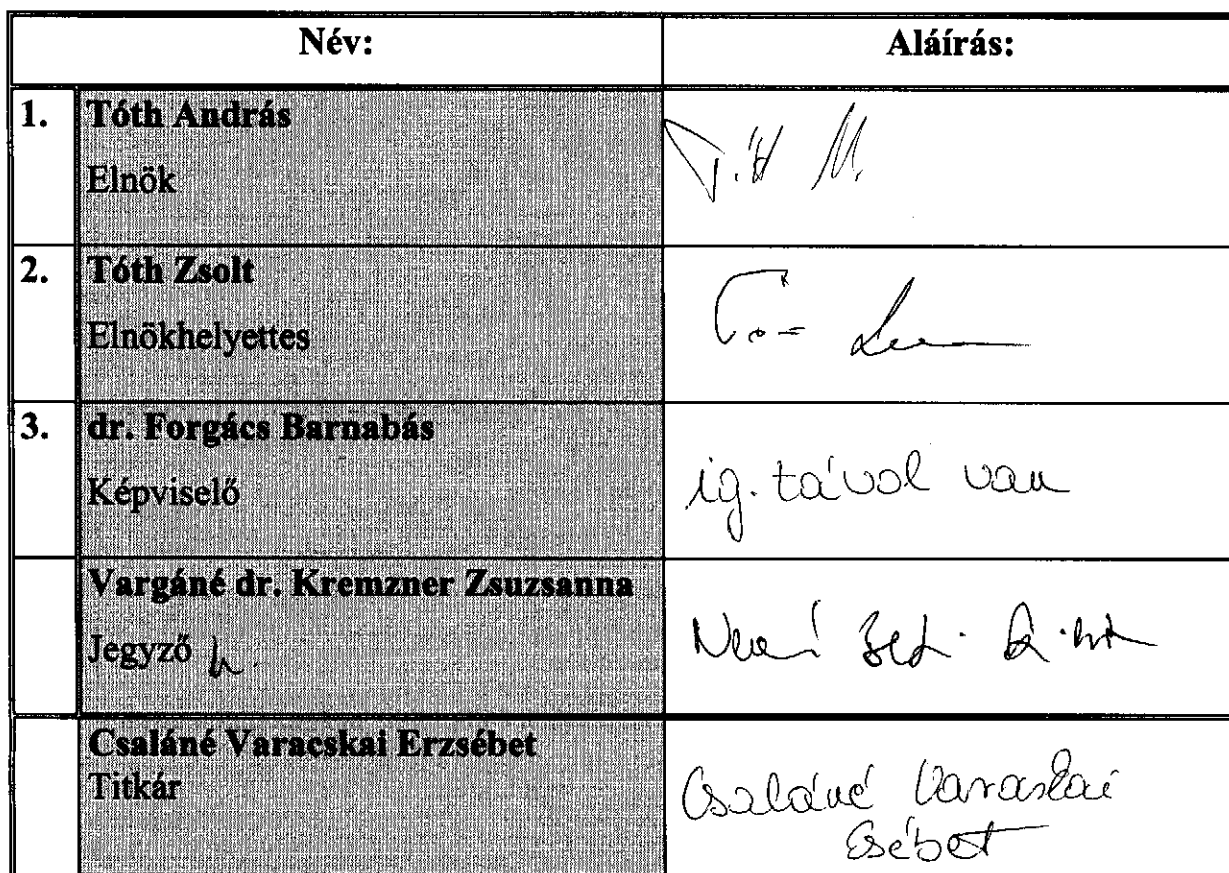 Név: Aláírás:
1. Tóth András
Elnök
2. Tóth Zsolt
Elnökhelyettes
3. dr. Forgács Barnabás
Képviselő
ig. távol van
Vargáné dr. Kremzner Zsuzsanna
Jegyző h.
Csaláné Varacskai Erzsébet
Titkár
Csaláné Varacskai
Esébet